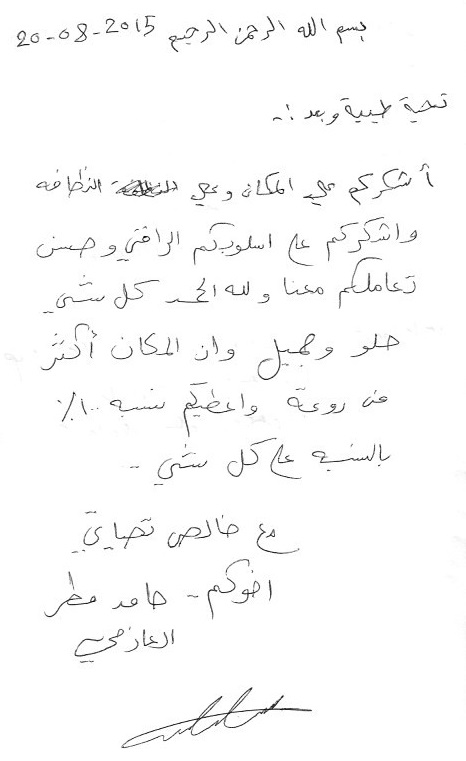 بسم الله الرحمن الرحيم 20-08-2015
تحية طيبة وبعد :-
أشكركم على المكان وعلى النظافه
واشكركم على اسلوبكم الراقي وحسن
تعاملكم معنا ولله الحمد كل شي
حلو وجميل وان المكان أكثر
من روعة واعطيكم نسبه ١٠٠٪
بالنسبه على كل شي ..
مع خالص تحياتي
اخوكم - حامد مطر
العازمي